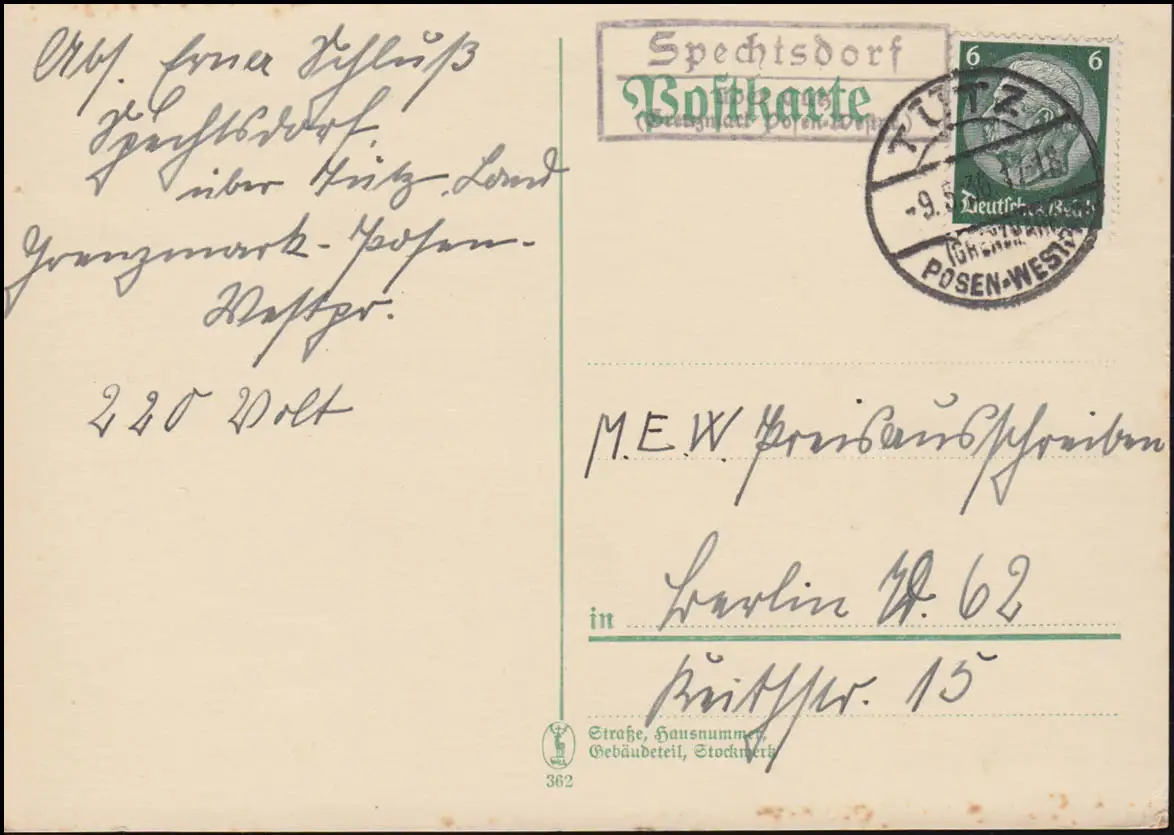 Abs. Erna Schluß
Spechtsdorf
über Tütz Land
Grenzmark-Posen-
Westpr.
220 Volt
Spechtsdorf
Postkarte
über Tütz
(Grenzmark Posen-Westpr
6 6
Deutsches Reich
TÜTZ
-9.5.36 17-18
(GRENZMARK
POSEN-WESTPR
M.E.W. Preisausschreiben
in Berlin W. 62
Keithstr. 15
Straße, Hausnummer,
Gebäudeteil, Stockwerk
362